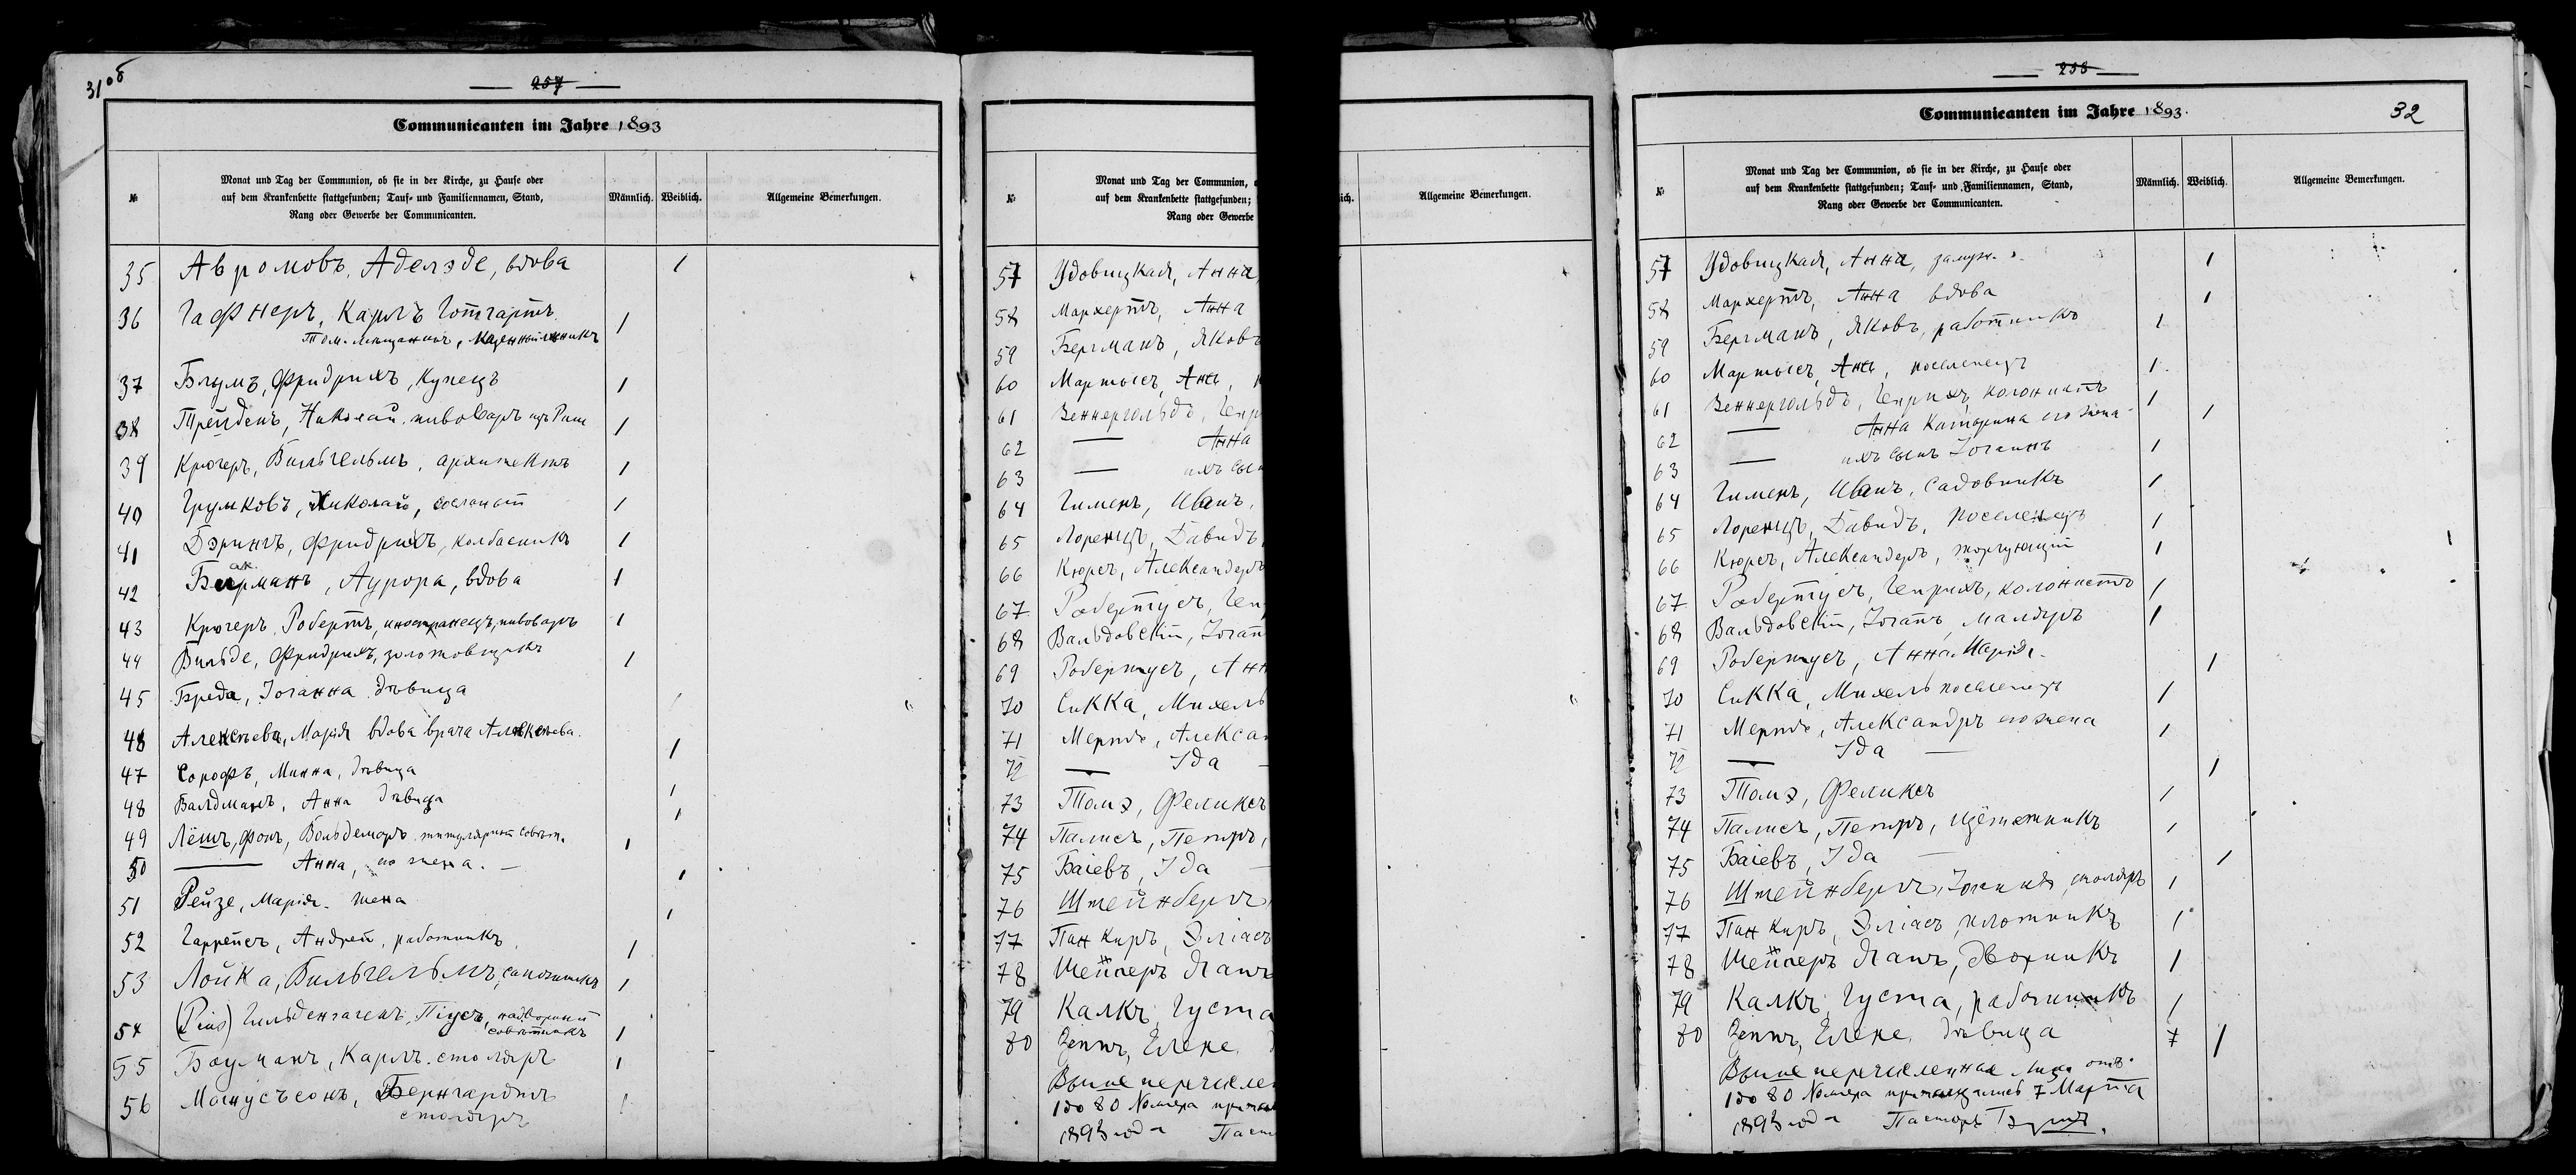 31об
257
Communicanten im Jahre 1893
№
Monat und Tag der Communion, ob sie in der Kirche, zu Hause oder
auf dem Krankenbette stattgefunden; Tauf- und Familiennamen, Stand,
Rang oder Gewerbe der Communicanten.
Männlich.
Weiblich.
Allgemeine Bemerkungen.
35 Авромовъ, Аделэде, вдова 1
36 Гафнеръ, Карлъ Готгартъ 1
Том. мещанинъ,
37 Блумъ, Фридрихъ, Купецъ 1
38 Трейденъ, Николай, пивоваръ изъ Риги 1
39 Крюгеръ, Вильгельмъ, архитектъ 1
40 Грумковъ, Николай, 1
41 Дэрингъ, Фридрихъ, колбасникъ 1
42 Бекманъ, Аурора, вдова 1
43 Крюгеръ, Робертъ, иностранецъ, пивоваръ 1
44 Вильде, Фридрихъ, 1
45 Бреда, Іоганна дѣвица 1
46 Алексѣева, Марія вдова врача Алексѣева. 1
47 Сорофъ, Минна, дѣвица 1
48 Вальдманъ, Анна дѣвица 1
49 Лёшъ, фонъ, Вольдемаръ титулярный совѣт. 1
50 — Анна, его жена. — 1
51 Рейзе, Марія жена 1
52 Гаррейсъ, Андрей, работникъ 1
53 Лойка, Вильгельмъ, сапожникъ 1
54 (Pius) Гильденгагенъ, Піусъ, надворный
совѣтникъ 1
55 Бауманъ, Карлъ столяръ 1
56 Магнусъсонъ, Бернгардтъ 1
столяръ
№
Monat und Tag der Communion,
auf dem Krankenbette stattgefunden;
Rang oder Gewerbe
57 Удовицкая, Анна,
58 Мархертъ, Анна
59 Бергманъ, Яковъ
60 Мартысъ,
61 Зеннергольдъ, Генр
62 — Анна
63 — ихъ сын
64 Гименъ, Иванъ,
65 Лоренцъ, Давидъ,
66 Кюрсъ, Александеръ
67 Робертусъ, Ген
68 Вальдовскій, Іоган
69 Робертусъ, Анн
70 Сикка, Михель
71 Алексан
72 — Ида
73 Томэ, Феликсъ
74 Палисъ, Петръ,
75 Баіевъ, Ида —
76 Штейнбергъ,
77 Панкиръ, Эліасъ
78 Янъ
79 Калкъ, Густа
80 Елене,
Вышеперечислен
1 до 80 Номера
1893 года Паст
lich.
Allgemeine Bemerkungen.
258
Communicanten im Jahre 1893.
32
№
Monat und Tag der Communion, ob sie in der Kirche, zu Hause oder
auf dem Krankenbette stattgefunden; Tauf- und Familiennamen, Stand,
Rang oder Gewerbe der Communicanten.
Männlich.
Weiblich.
Allgemeine Bemerkungen.
57 Удовицкая, Анна, замуж. 1
58 Мархертъ, Анна вдова 1
59 Бергманъ, Яковъ, работникъ 1
60 Мартысъ, поселенецъ 1
61 Зеннергольдъ, Генрихъ, колонистъ 1
62 — Анна Катарина его жена 1
63 — ихъ сынъ Іоганнъ 1
64 Гименъ, Иванъ, садовникъ 1
65 Лоренцъ, Давидъ, поселенецъ 1
66 Кюрсъ, Александеръ, торгующій 1
67 Робертусъ, Генрихъ, колонистъ 1
68 Вальдовскій, Іоганъ, Маляръ 1
69 Робертусъ, Анна Марія 1
70 Сикка, Михель поселенецъ 1
71 Александръ его жена 1
72 — Ида — 1
73 Томэ, Феликсъ 1
74 Палисъ, Петръ, 1
75 Баіевъ, Ида — 1
76 Штейнбергъ, столяръ 1
77 Панкиръ, Эліасъ, плотникъ 1
78 Янъ, дворникъ 1
79 Калкъ, Густа, работникъ 1
80 Елене, дѣвица 1
Вышеперечисленная лица отъ
1 до 80 Номера пріобщались 7 Марта
1893 года Пасторъ